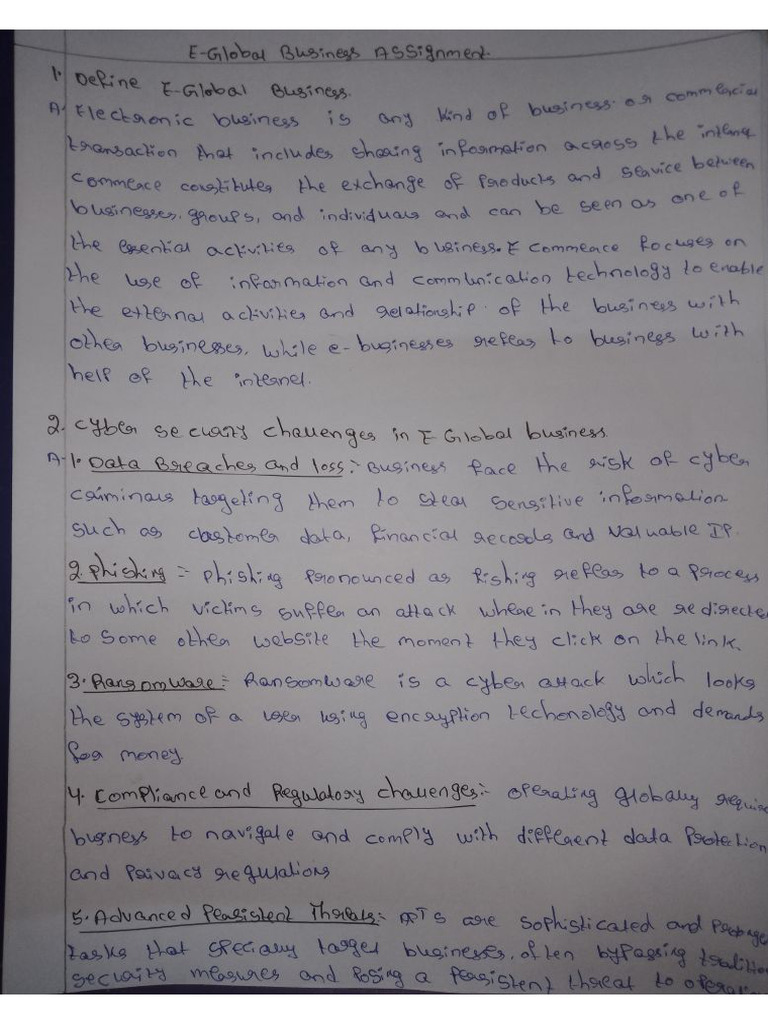 E-Global Business ASSignment.
1. Define E-Global Business.
A. Electronic business is any kind of business or commercial
transaction that includes sharing information across the interne
commerce constitutes the exchange of Products and service between
businesses, groups, and individuals and can be seen as one of
the essential activities of any business. E commerce focuses on
the use of information and communication technology to enable
the external activities and relationship of the business with
other businesses, while e-businesses refers to business with
help of the internet.
2. Cyber security challenges in E Global business
A-1. Data Breaches and loss:- Business face the risk of cyber
criminals targeting them to steal sensitive information
such as customer data, financial records and valuable IP.
2. Phishing :- Phishing pronounced as fishing refers to a process
in which victims suffer an attack where in they are redirecte
to some other website the moment they click on the link.
3. Ransomware:- Ransomware is a cyber attack which looks
the system of a user using encryption techonology and demands
for money
4. Compliance and Regulatory challenges:- operating globally require
business to navigate and comply with different data Protection
and Privacy regulations
5. Advanced Persistent Threats:- APTS are sophisticated and
tasks that specially target businesses, often bypassing
security measures and posing a Persistent threat to